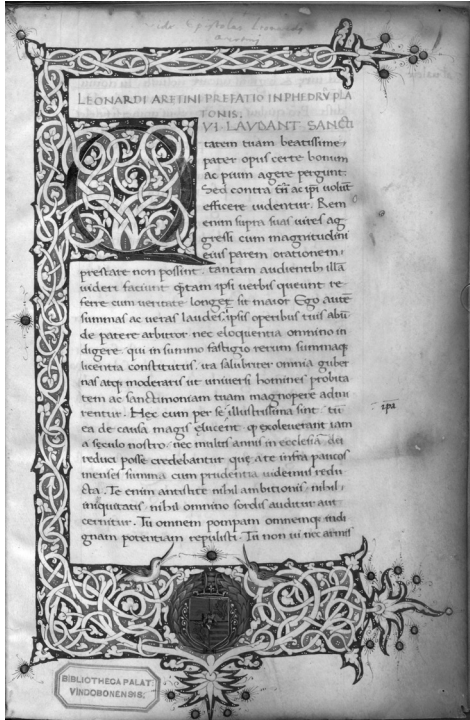 LEONARDI ARETINI PREFATIO IN PHEDRV̄ PLA
TONIS;
QVI LAVDANT SANCTI
tatem tuam beatissime,
pater opus certe bonum
ac pium agere pergunt:
Sed contra tn̄ ac ipi uolūt
efficere uidentur. Rem
enim supra suas uires ag
gressi cum magnitudini
eius parem orationem,
prestare non possint, tantam audientib; illā
uideri faciunt q̄tam ipsi uerbis queunt re
ferre cum ueritate longe sit maior Ego autē
summas ac ueras laudes, ipsis operibus tuis abū
de patere arbitror nec eloquentia omnino in
digere, qui in summo fastigio rerum summaq;
licentia constitutus, ita salubriter omnia guber
nas atq; moderaris ut uniuersi homines probita
tem ac sanctimoniam tuam magnopere admi
rentur. Hec cum per se illustrissima sint, tū
ea de causa magis elucent, q̄ exoleuerant iam
a seculo nostro, nec multis annis in ecclesia dei
reduci posse credebantur que a te infra paucos
menses summa cum prudentia uidemus redu
cta. Te enim antistite nihil ambitionis, nihil,
iniquitatis, nihil omnino sordis auditur aut
cernitur. Tu omnem pompam omnemq; indi
gnam potentiam repulisti. Tu non ui nec armis
ipi
BIBLIOTHECA PALAT.
VINDOBONENSIS.